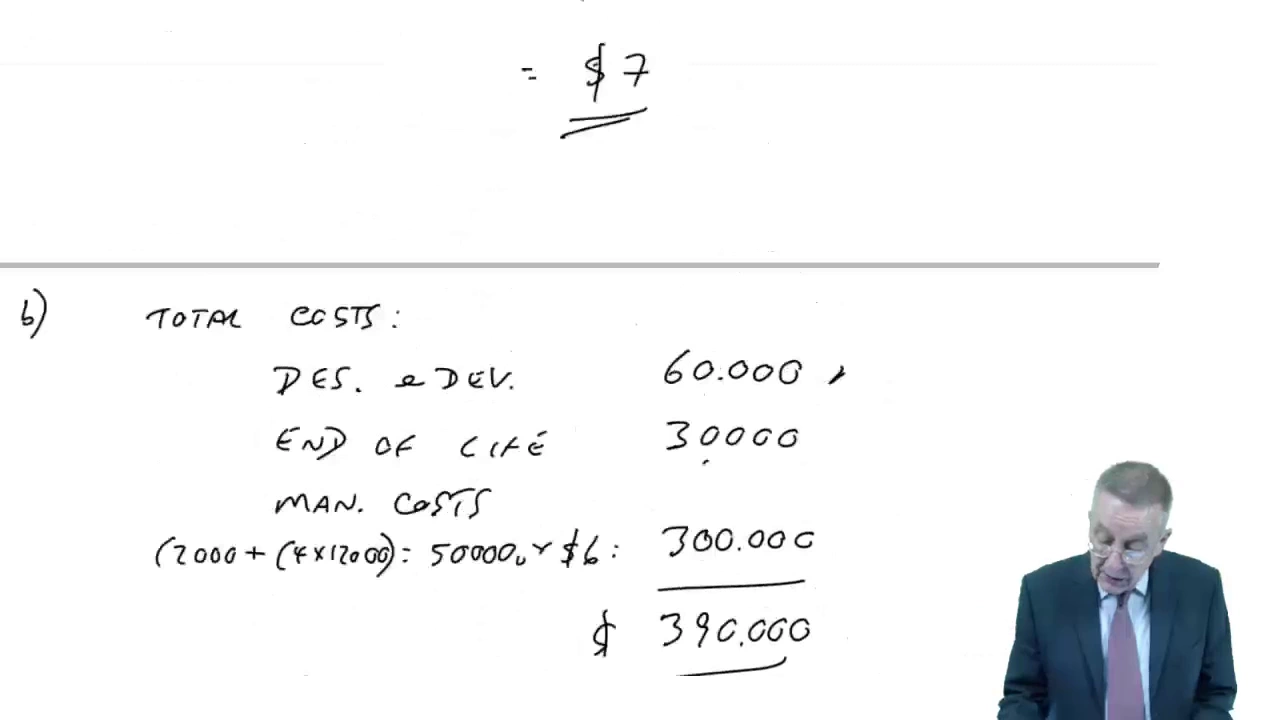 = $7
b) TOTAL COSTS:
DES. & DEV. 60.000
END OF LIFE 30000
MAN. COSTS
(2000 + (4 x 12000) = 50000u x $6 : 300.000
$ 390.000